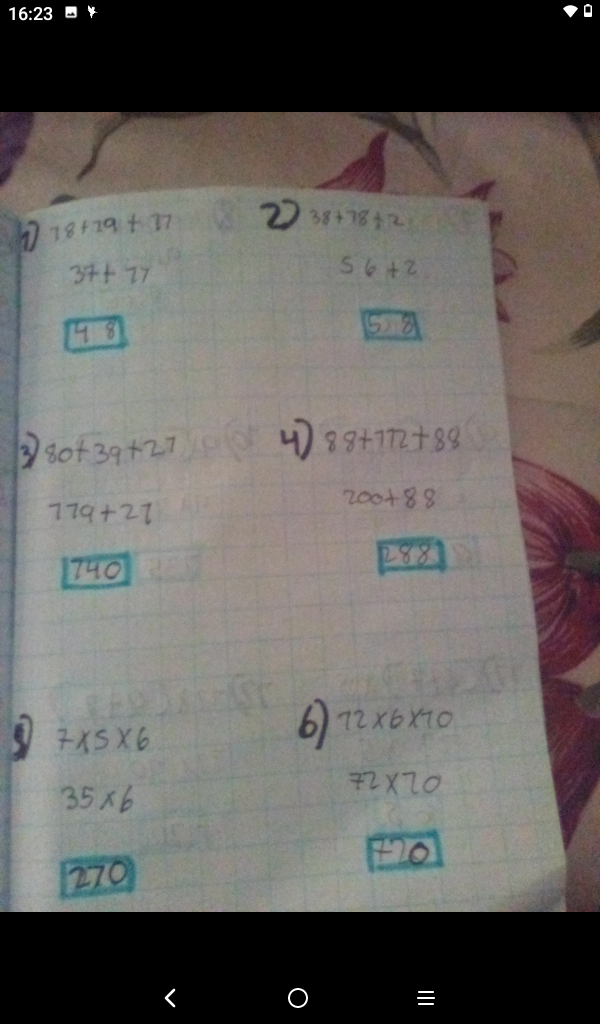 16:23
1) 18+19+11
37+11
48
2) 38+18+2
56+2
58
3) 80+39+21
119+21
140
4) 88+112+88
200+88
288
5) 7x5x6
35x6
210
6) 12x6x10
72x10
720